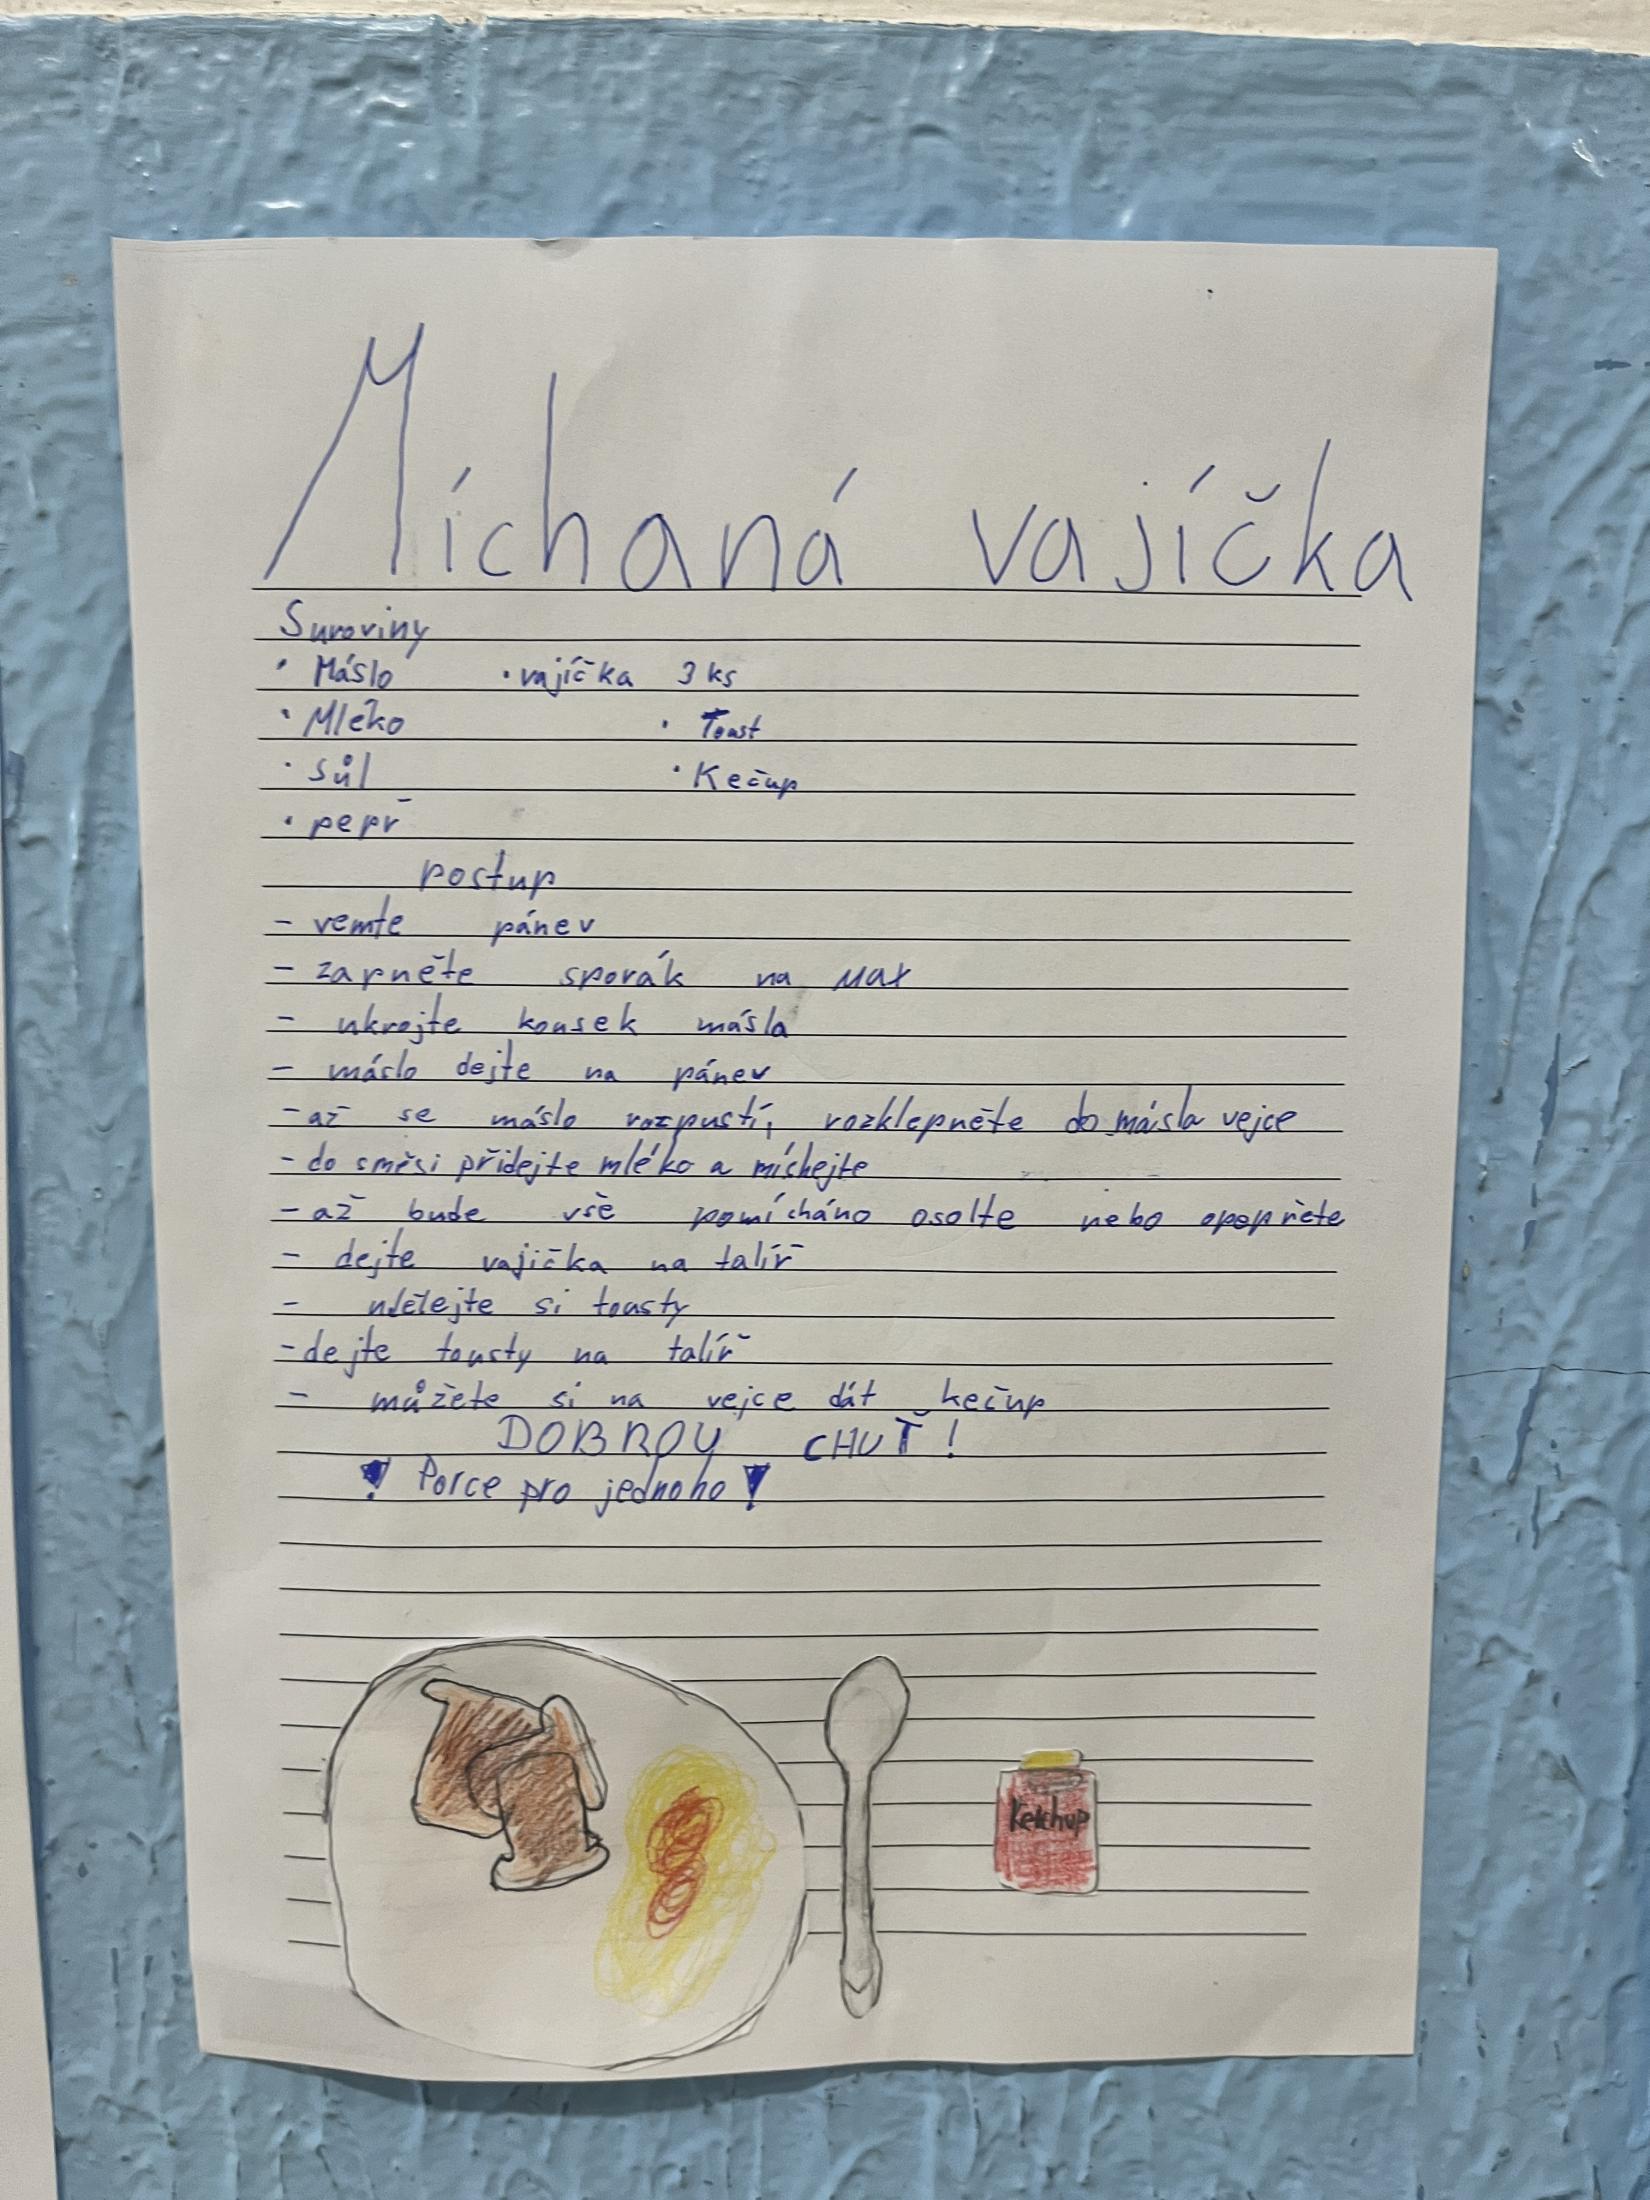 Míchaná vajíčka
Suroviny
• Máslo • vajíčka 3 ks
• Mléko • Toast
• sůl • Kečup
• pepř
postup
- vemte pánev
- zapněte sporák na MAX
- ukrojte kousek másla
- máslo dejte na pánev
- až se máslo rozpustí, rozklepněte do másla vejce
- do směsi přidejte mléko a míchejte
- až bude vše pomícháno osolte nebo opepřete
- dejte vajička na talíř
- udělejte si tousty
- dejte tousty na talíř
- můžete si na vejce dát kečup
DOBROU CHUŤ!
! Porce pro jednoho !
Ketchup